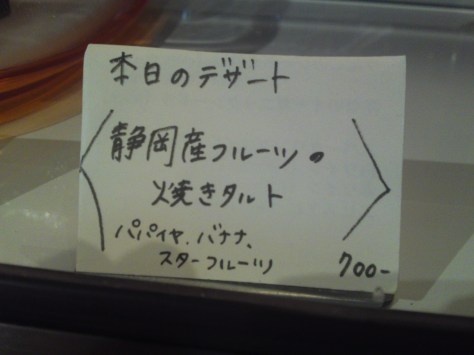 本日のデザート
静岡産フルーツの
焼きタルト
パパイヤ、バナナ、
スターフルーツ
700-